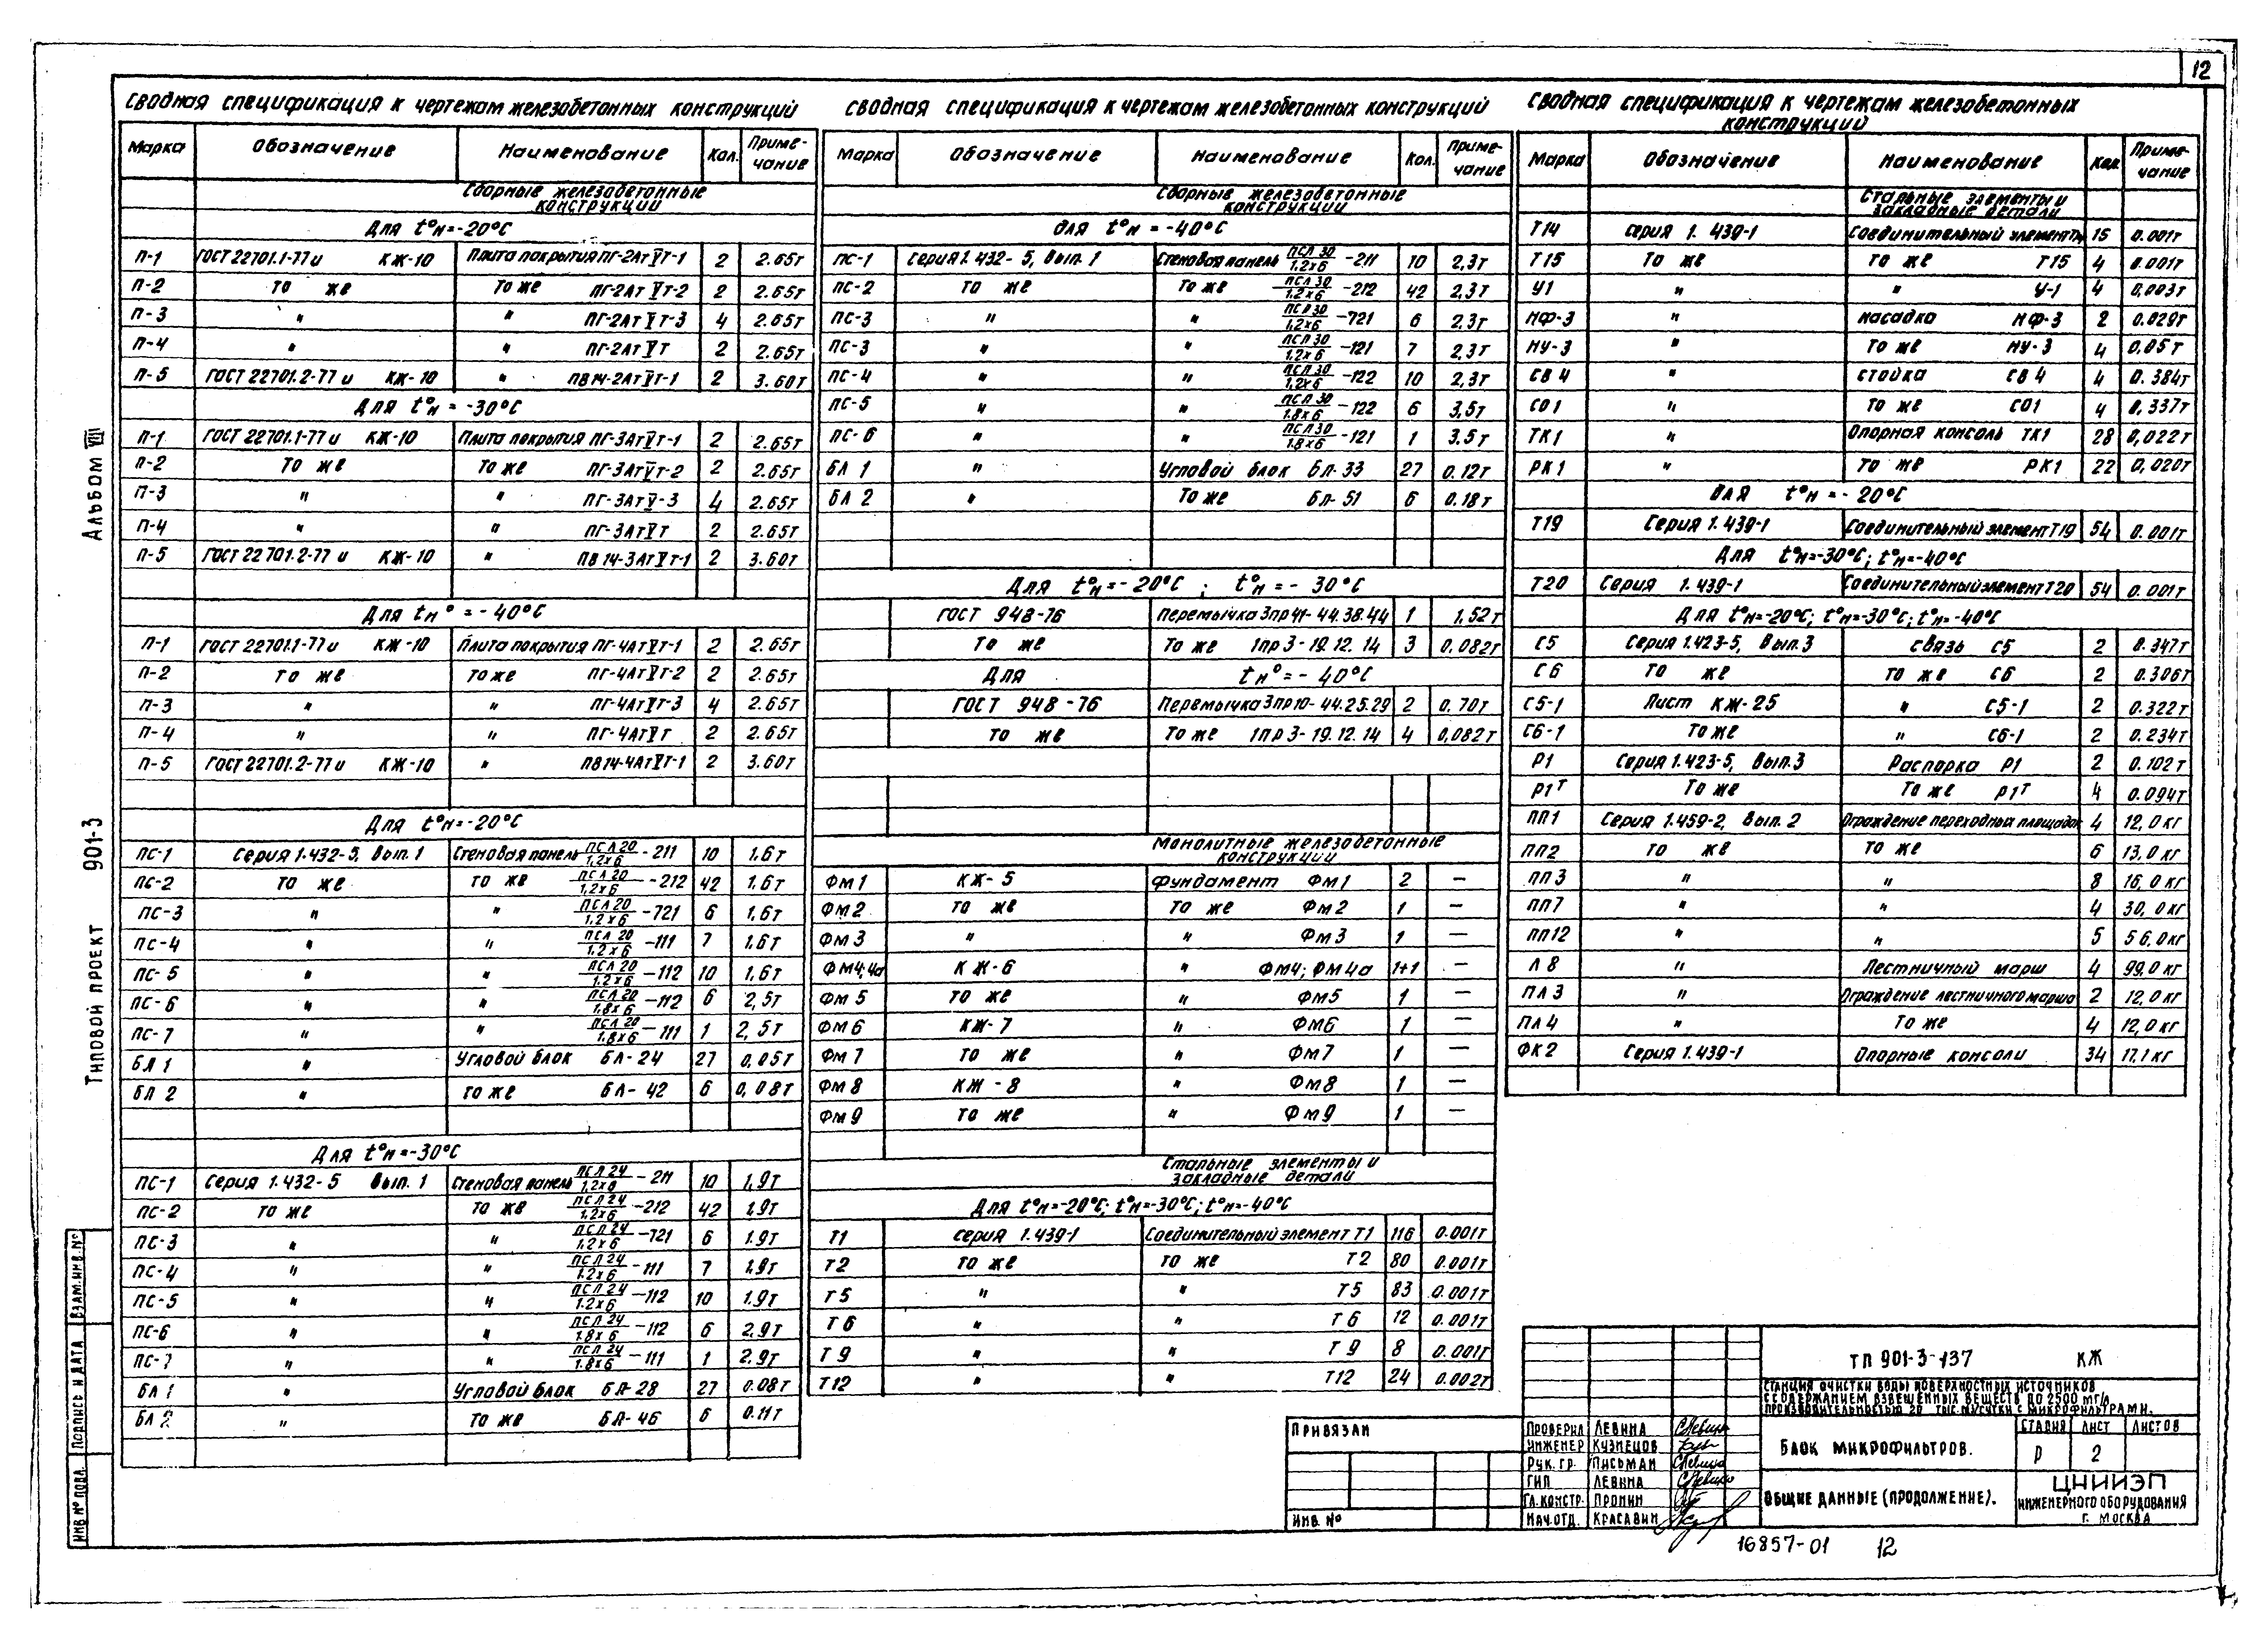 12
Сводная спецификация к чертежам железобетонных конструкций
Марка Обозначение Наименование Кол. Приме-чание
Сборные железобетонные конструкции
Для t°н=-20°С
П-1 ГОСТ 22701.1-77 и КЖ-10 Плита покрытия ПГ-2АтVт-1 2 2.65т
П-2 То же То же ПГ-2АтVт-2 2 2.65т
П-3 " " ПГ-2АтVт-3 4 2.65т
П-4 " " ПГ-2АтVт 2 2.65т
П-5 ГОСТ 22701.2-77 и КЖ-10 " ПВ14-2АтVт-1 2 3.60т
Для t°н=-30°С
П-1 ГОСТ 22701.1-77 и КЖ-10 Плита покрытия ПГ-3АтVт-1 2 2.65т
П-2 То же То же ПГ-3АтVт-2 2 2.65т
П-3 " " ПГ-3АтV-3 4 2.65т
П-4 " " ПГ-3АтVт 2 2.65т
П-5 ГОСТ 22701.2-77 и КЖ-10 " ПВ14-3АтVт-1 2 3.60т
Для tн°=-40°С
П-1 ГОСТ 22701.1-77 и КЖ-10 Плита покрытия ПГ-4АтVт-1 2 2.65т
П-2 То же То же ПГ-4АтVт-2 2 2.65т
П-3 " " ПГ-4АтVт-3 4 2.65т
П-4 " " ПГ-4АтVт 2 2.65т
П-5 ГОСТ 22701.2-77 и КЖ-10 " ПВ14-4АтVт-1 2 3.60т
Для t°н=-20°С
ПС-1 Серия 1.432-5, Вып. 1 Стеновая панель ПСЛ20/1,2х6-211 10 1.6т
ПС-2 То же То же ПСЛ20/1,2х6-212 42 1.6т
ПС-3 " " ПСЛ20/1,2х6-721 6 1,6т
ПС-4 " " ПСЛ20/1.2х6-111 7 1.6т
ПС-5 " " ПСЛ20/1.2х6-112 10 1.6т
ПС-6 " " ПСЛ20/1.8х6-112 6 2,5т
ПС-7 " " ПСЛ20/1.8х6-111 1 2,5т
БЛ 1 " Угловой блок БЛ-24 27 0,05т
БЛ 2 " То же БЛ-42 6 0,08т
Для t°н=-30°С
ПС-1 Серия 1.432-5 Вып. 1 Стеновая панель ПСЛ24/1.2х6-211 10 1,9т
ПС-2 То же То же ПСЛ24/1.2х6-212 42 1.9т
ПС-3 " " ПСЛ24/1.2х6-721 6 1.9т
ПС-4 " " ПСЛ24/1.2х6-111 7 1.9т
ПС-5 " " ПСЛ24/1.2х6-112 10 1.9т
ПС-6 " " ПСЛ24/1.8х6-112 6 2,9т
ПС-7 " " ПСЛ24/1.8х6-111 1 2.9т
БЛ 1 " Угловой блок БЛ-28 27 0.08т
БЛ 2 " То же БЛ-46 6 0.11т
Сводная спецификация к чертежам железобетонных конструкций
Марка Обозначение Наименование Кол. Приме-чание
Сборные железобетонные конструкции
Для t°н=-40°С
ПС-1 Серия 1.432-5, Вып. 1 Стеновая панель ПСЛ30/1,2х6-211 10 2,3т
ПС-2 То же То же ПСЛ30/1.2х6-212 42 2,3т
ПС-3 " " ПСЛ30/1.2х6-721 6 2,3т
ПС-3 " " ПСЛ30/1.2х6-121 7 2,3т
ПС-4 " " ПСЛ30/1.2х6-122 10 2,3т
ПС-5 " " ПСЛ30/1.8х6-122 6 3,5т
ПС-6 " " ПСЛ30/1.8х6-121 1 3.5т
БЛ 1 " Угловой блок БЛ-33 27 0.12т
БЛ 2 " То же БЛ-51 6 0.18т
Для t°н=-20°С; t°н=-30°С
ГОСТ 948-76 Перемычка 3пр41-44.38.44 1 1,52т
То же То же 1пр3-19.12.14 3 0.082т
Для tн°=-40°С
ГОСТ 948-76 Перемычка 3пр10-44.25.29 2 0.70т
То же То же 1пр3-19.12.14 4 0,082т
Монолитные железобетонные конструкции
ФМ1 КЖ-5 Фундамент ФМ1 2 —
ФМ2 То же То же ФМ2 1 —
ФМ3 " " ФМ3 1 —
ФМ4; 4а КЖ-6 " ФМ4; ФМ4а 1+1 —
ФМ5 То же " ФМ5 1 —
ФМ6 КЖ-7 " ФМ6 1 —
ФМ7 То же " ФМ7 1 —
ФМ8 КЖ-8 " ФМ8 1 —
ФМ9 То же " ФМ9 1 —
Стальные элементы и закладные детали
Для t°н=-20°С; t°н=-30°С; t°н=-40°С
Т1 Серия 1.439-1 Соединительный элемент Т1 116 0.001т
Т2 То же То же Т2 80 0.001т
Т5 " " Т5 83 0.001т
Т6 " " Т6 12 0.001т
Т9 " " Т9 8 0.001т
Т12 " " Т12 24 0.002т
Сводная спецификация к чертежам железобетонных конструкций
Марка Обозначение Наименование Кол. Приме-чание
Стальные элементы и закладные детали
Т14 Серия 1.439-1 Соединительный элемент 15 0.001т
Т15 То же То же Т15 4 0.001т
У1 " " У-1 4 0,003т
НФ-3 " Насадка НФ-3 2 0.029т
НУ-3 " То же НУ-3 4 0,05т
СВ4 " Стойка СВ4 4 0.384т
СО1 " То же СО1 4 0,337т
ТК1 " Опорная консоль ТК1 28 0,022т
РК1 " То же РК1 22 0,020т
Для t°н=-20°С
Т19 Серия 1.439-1 Соединительный элемент Т19 54 0.001т
Для t°н=-30°С; t°н=-40°С
Т20 Серия 1.439-1 Соединительный элемент Т20 54 0.001т
Для t°н=-20°С; t°н=-30°С; t°н=-40°С
С5 Серия 1.423-5, Вып.3 Связь С5 2 0.347т
С6 То же То же С6 2 0.306т
С5-1 Лист КЖ-25 " С5-1 2 0.322т
С6-1 То же " С6-1 2 0.234т
Р1 Серия 1.423-5, Вып.3 Распорка Р1 2 0.102т
Р1т То же То же Р1т 4 0.094т
ПП1 Серия 1.459-2, Вып. 2 Ограждение переходных площадок 4 12,0кг
ПП2 То же То же 6 13.0кг
ПП3 " " 8 16,0кг
ПП7 " " 4 30,0кг
ПП12 " " 5 56,0кг
Л8 " Лестничный марш 4 99.0кг
ПЛ3 " Ограждение лестничного марша 2 12,0кг
ПЛ4 " То же 4 12,0кг
ФК2 Серия 1.439-1 Опорные консоли 34 17.1кг
Альбом VIII
Типовой проект 901-3
Взам.инв.№
Подпись и дата
Инв № подл.
Привязан
Инв. №
Проверил Левина
Инженер Кузнецов
Рук. гр. Письман
ГИП Левина
Гл. констр. Пронин
Нач. отд. Красавин
ТП 901-3-137 КЖ
Станция очистки воды поверхностных источников
с содержанием взвешенных веществ до 2500 мг/л
производительностью 20 тыс. м3/сутки с микрофильтрами.
Блок микрофильтров.
Стадия Лист Листов
Р 2
Общие данные (продолжение).
ЦНИИЭП
инженерного оборудования
г. Москва
16857-01 12